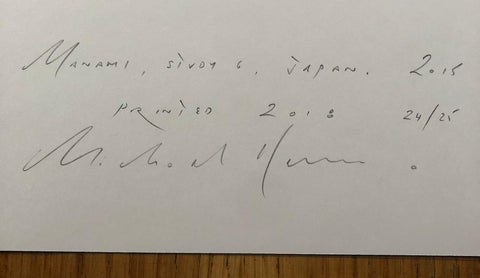 MANAMI, STUDY 6, JAPAN. 2015
PRINTED 2018 24/25
Michael Kenna